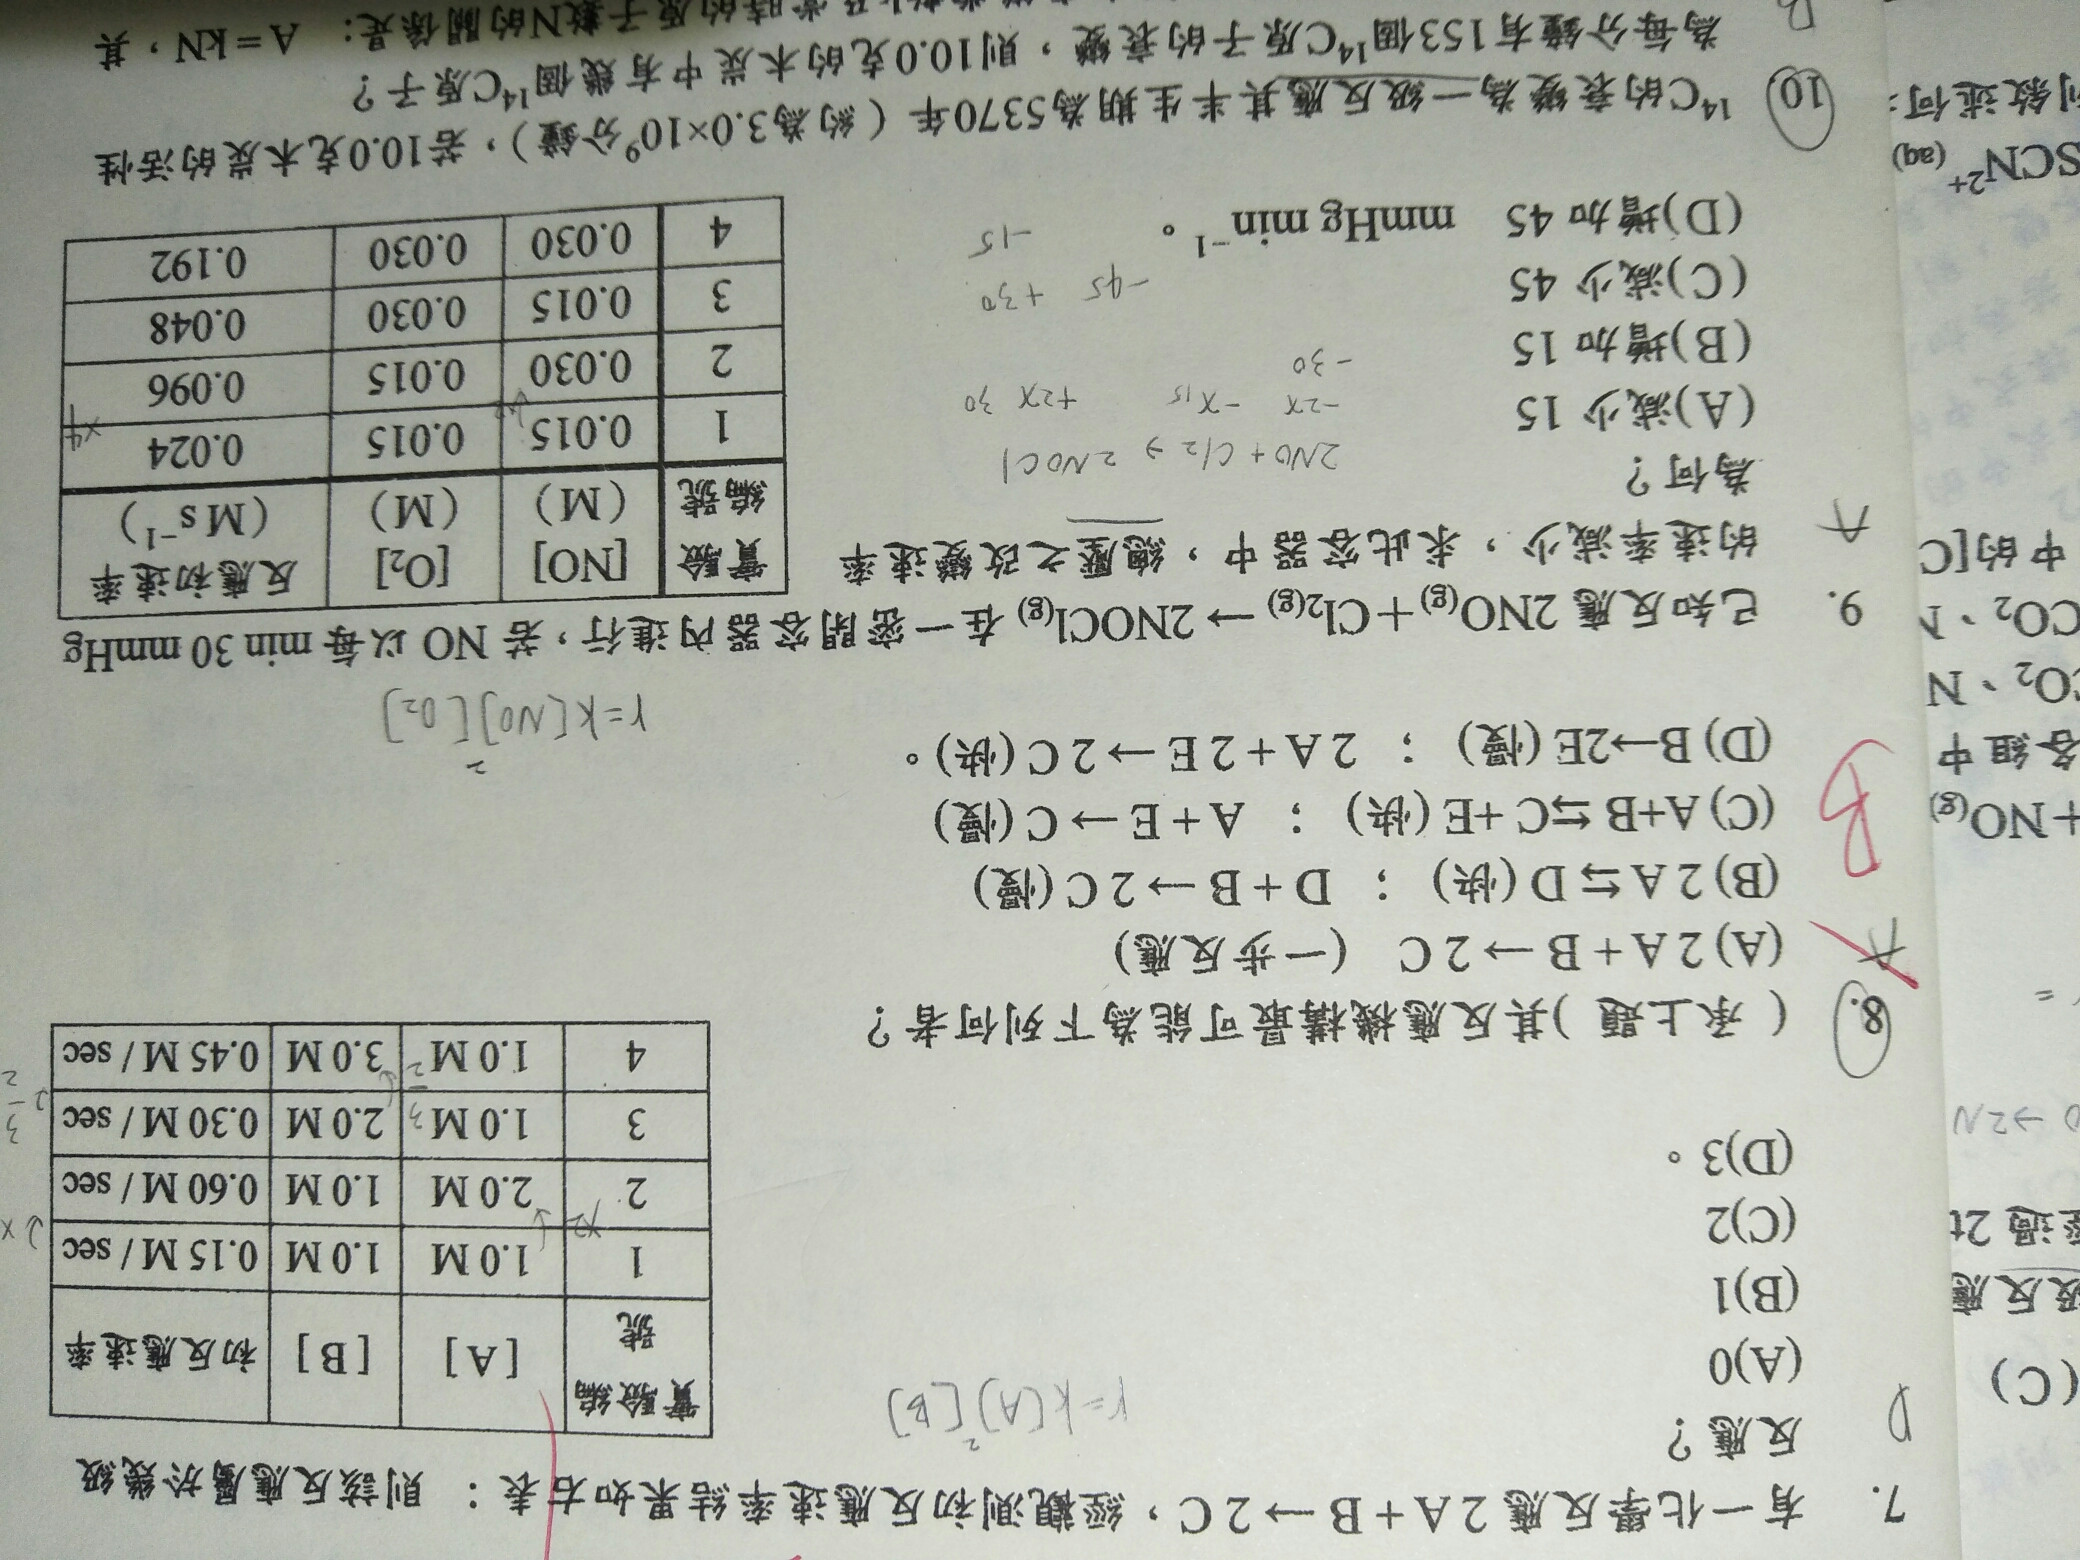 7. 有一化學反應 2A+B→2C，經觀測初反應速率結果如右表：則該反應屬於幾級
D 反應？
r=k[A]²[B]
(A)0
(B)1
(C)2
(D)3。
實驗編號 [A] [B] 初反應速率
1 1.0 M 1.0 M 0.15 M / sec
×2
2 2.0 M 1.0 M 0.60 M / sec
3 1.0 M 2.0 M 0.30 M / sec
3/2
4 1.0 M 3.0 M 0.45 M / sec
3/2
8. (承上題)其反應機構最可能為下列何者？
A (A) 2A+B→2C （一步反應）
(B) 2A⇆D (快)； D+B→2C (慢)
B
(C) A+B⇆C+E (快)； A+E→C (慢)
(D) B→2E (慢)； 2A+2E→2C (快)。
r=k[NO]²[O₂]
9. 已知反應 2NO(g)+Cl₂(g)→2NOCl(g) 在一密閉容器內進行，若 NO 以每 min 30 mmHg
A 的速率減少，求此容器中，總壓之改變速率
為何？
2NO+Cl2→2NOCl
(A)減少 15
-2x -x 15 +2x 30
-30
(B)增加 15
(C)減少 45
-45 +30
(D)增加 45 mmHg min⁻¹。
-15
實驗編號 [NO] (M) [O₂] (M) 反應初速率 (M s⁻¹)
1 0.015 0.015 0.024
×4
2 0.030 0.015 0.096
3 0.015 0.030 0.048
4 0.030 0.030 0.192
10. ¹⁴C的衰變為一級反應其半生期為5370年（約為3.0×10⁹分鐘），若10.0克木炭的活性
為每分鐘有153個¹⁴C原子的衰變，則10.0克的木炭中有幾個¹⁴C原子？
時的原子數N的關係是：A=kN，其
(C)
級反應
率過 2t
→2N
+NO(g)
各組中
CO₂、N
CO₂、N
中的[C
SCN²⁺(aq)
列敘述何